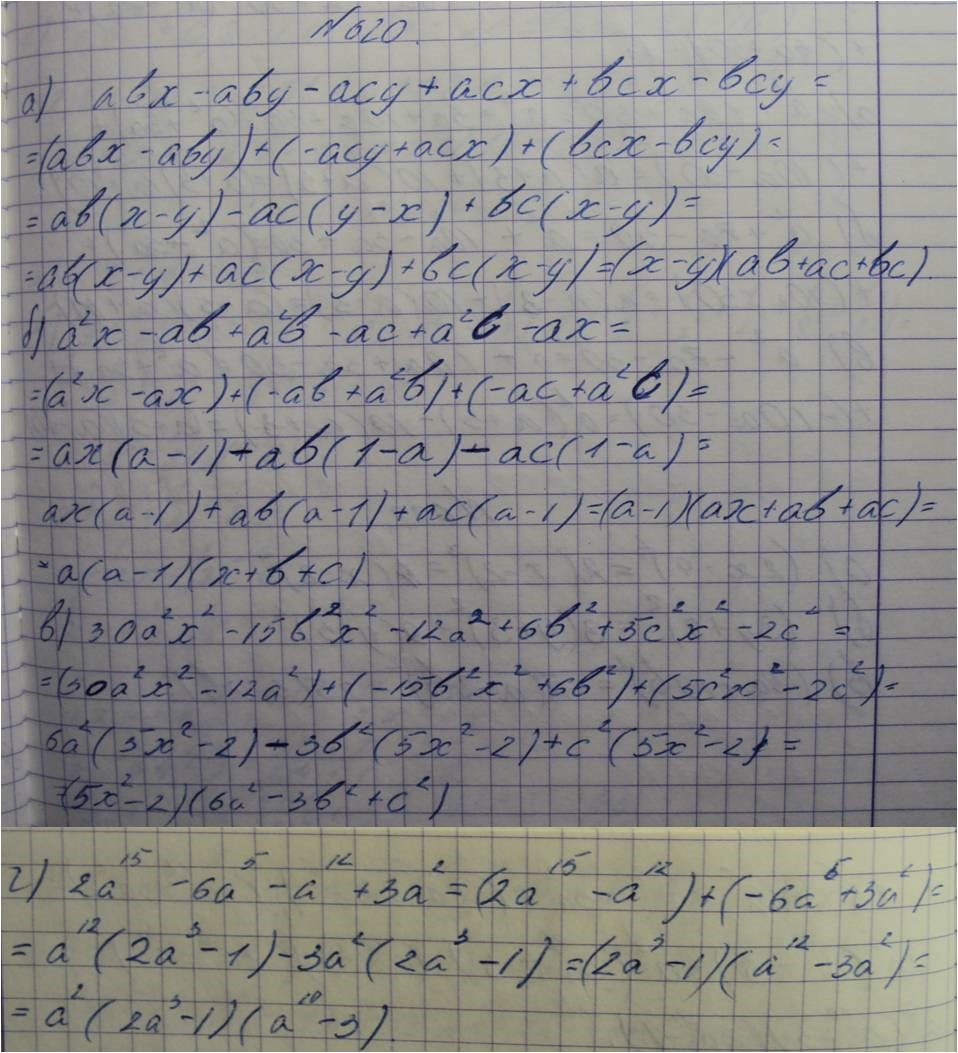 №620.
а) авx - авy - acy + acx + вcx - вcy =
=(авx - авy) + (-acy + acx) + (вcx - вcy) =
= ав(x-y) - ac(y-x) + вc(x-y) =
=ав(x-y) + ac(x-y) + вc(x-y) = (x-y)(ав+ac+вc).
б) a²x - ав + a²в - ac + a²c - ax =
=(a²x - ax) + (-ав + a²в) + (-ac + a²c) =
= ax(a-1) + ав(1-a) - ac(1-a) =
ax(a-1) + ав(a-1) + ac(a-1) = (a-1)(ax+ав+ac) =
= a(a-1)(x+в+c).
в) 30a²x² - 15в²x² - 12a² + 6в² + 5c²x² - 2c² =
=(30a²x² - 12a²) + (-15в²x² + 6в²) + (5c²x² - 2c²) =
6a²(5x²-2) - 3в²(5x²-2) + c²(5x²-2) =
=(5x²-2)(6a² - 3в² + c²)
г) 2a¹⁵ - 6a⁵ - a¹² + 3a² = (2a¹⁵ - a¹²) + (-6a⁵ + 3a²) =
= a¹²(2a³-1) - 3a²(2a³-1) = (2a³-1)(a¹² - 3a²) =
= a²(2a³-1)(a¹⁰-3).